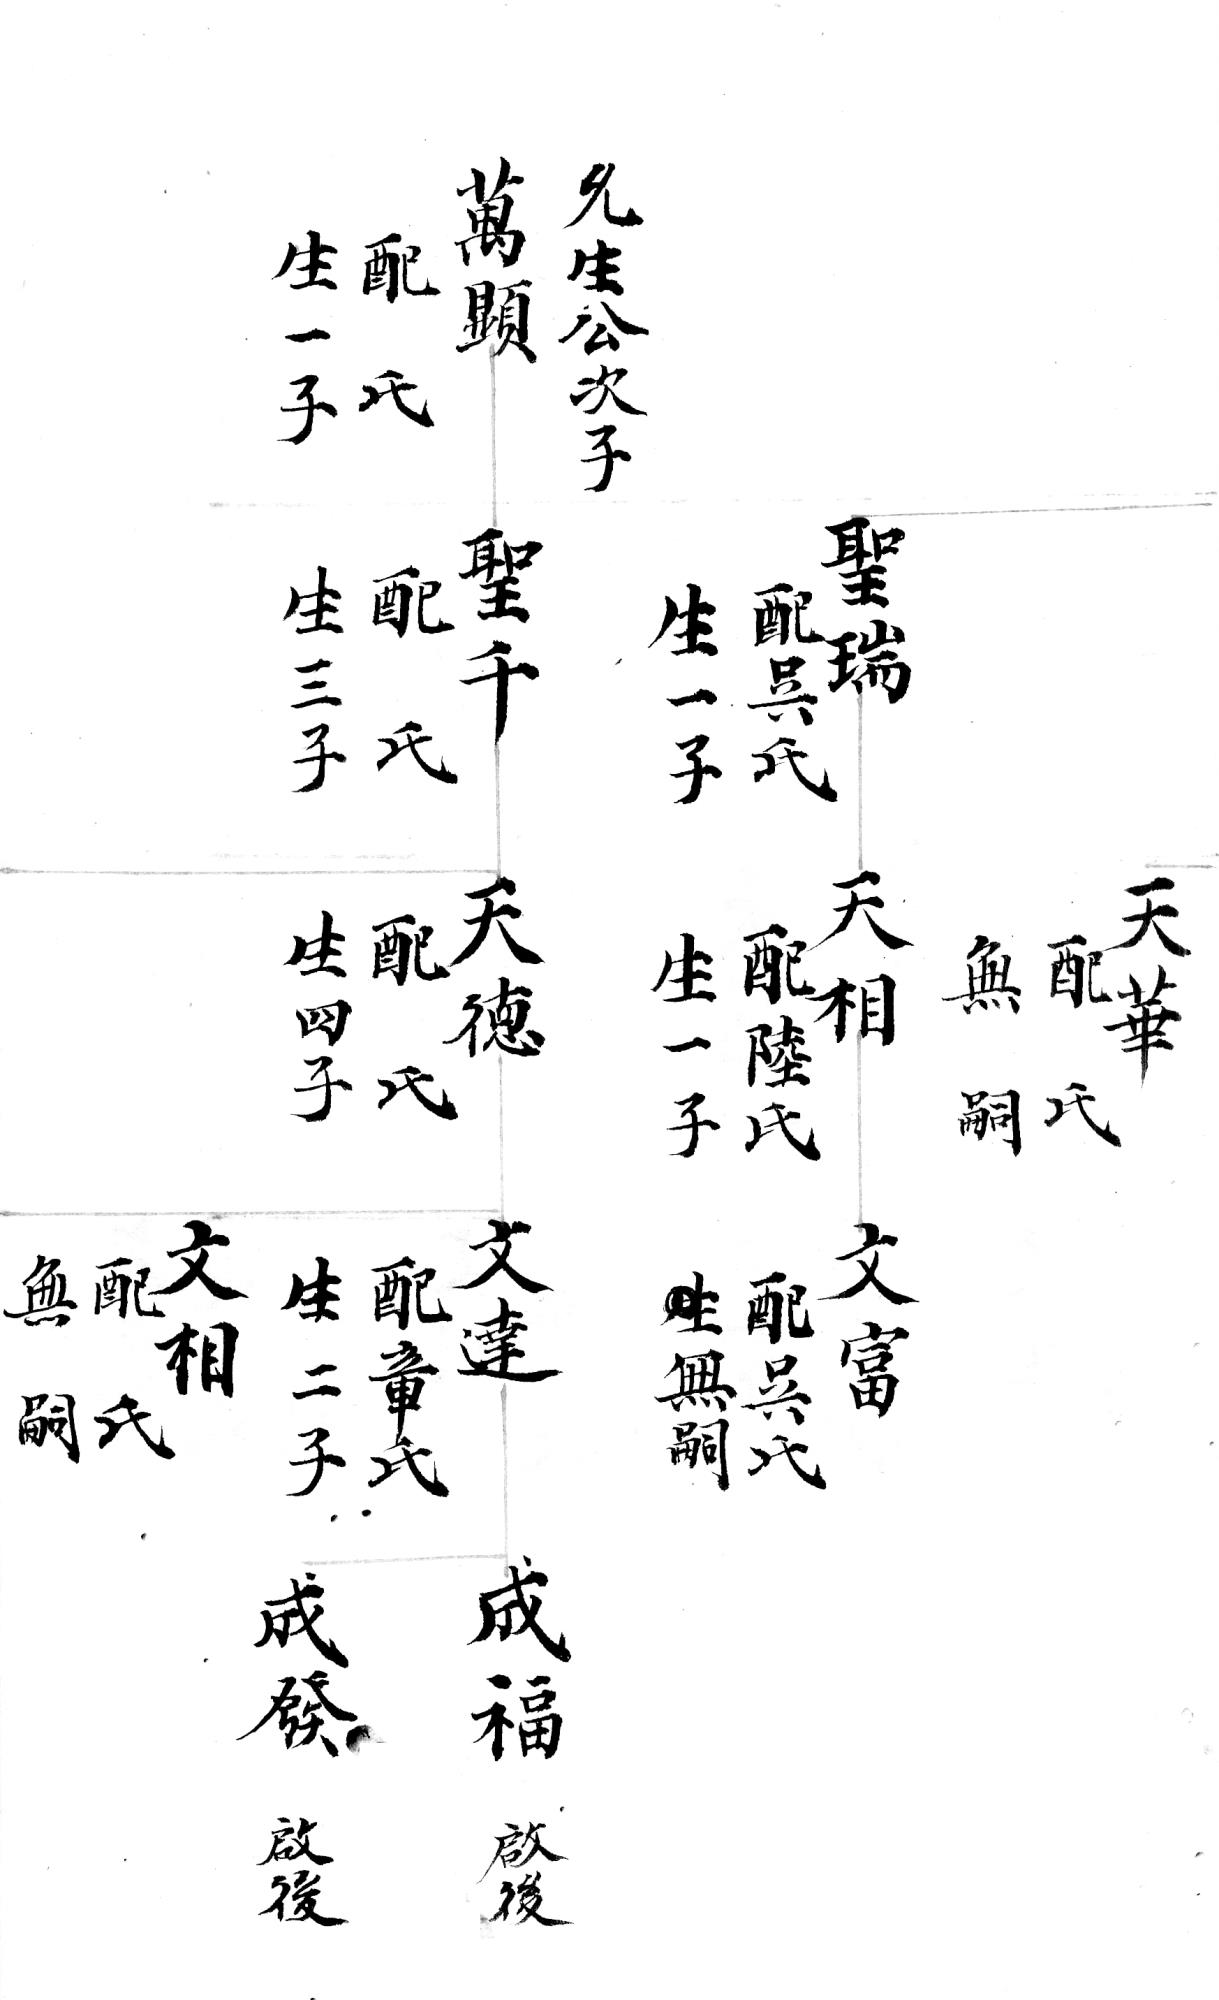 允生公次子
萬顯
配 氏
生一子
聖瑞
配吳氏
生一子
聖千
配 氏
生三子
天華
配 氏
無嗣
天相
配陸氏
生一子
天德
配 氏
生四子
文富
配吳氏
生無嗣
文達
配章氏
生二子
文相
配 氏
無嗣
成福
啟後
成發
啟後